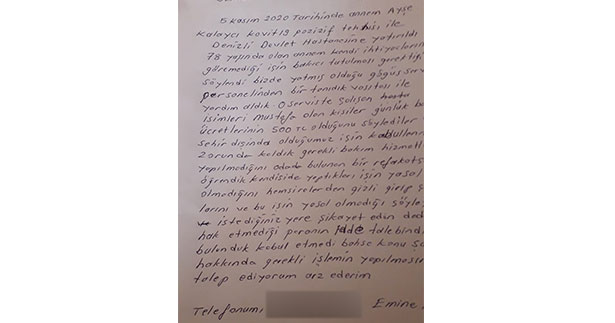 5 kasım 2020 Tarihinde annem Ayşe
Kalaycı kovit19 pozizif teşhisi ile
Denizli Devlet Hastanesine yatırıldı
78 yaşında olan annem kendi ihtiyaçların
göremediği için bakıcı tutulması gerektiği
söylendi bizde yatmış olduğu göğüs serv
personelinden bir tanıdık vasıtası ile
yardım aldık O serviste çalışan
isimleri Mustafa olan kişiler günlük b
ücretlerinin 500 TL olduğunu söylediler
şehir dışında olduğumuz için kabullenm
zorunda kaldık gerekli bakım hizmetl
yapılmadığını odada bulunan bir refakatç
öğrendik kendiside yaptıkları işin yasal
olmadığını hemşirelerden gizli girip ç
larını ve bu işin yasal olmadığı söyle
istediğiniz yere şikayet edin ded
hak etmediği paranın iade talebind
bulunduk kabul etmedi bahse konu şa
hakkında gerekli işlemin yapılmasın
talep ediyorum arz ederim
Telefonum,
Emine